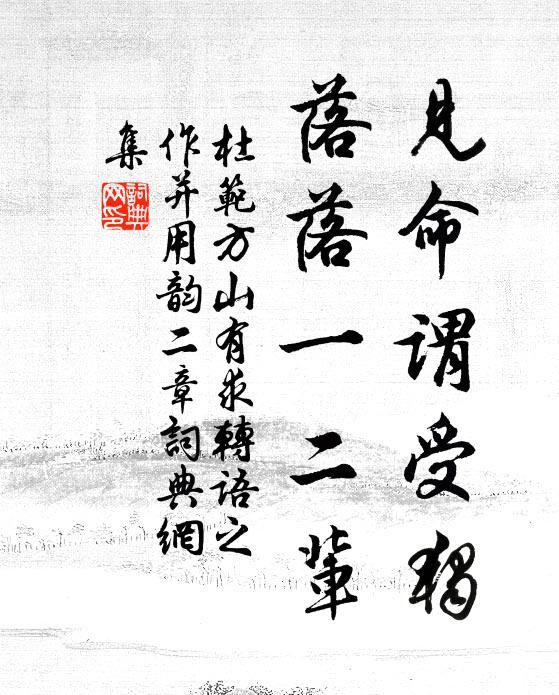 見命謂受獨
落落一二輩
杜範方山有求轉語之
作并用韵二章詞典網
集
詞典
网印